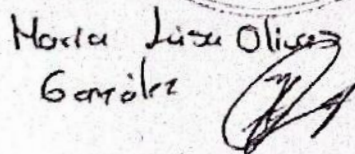 Maria Luisa Olivas
González